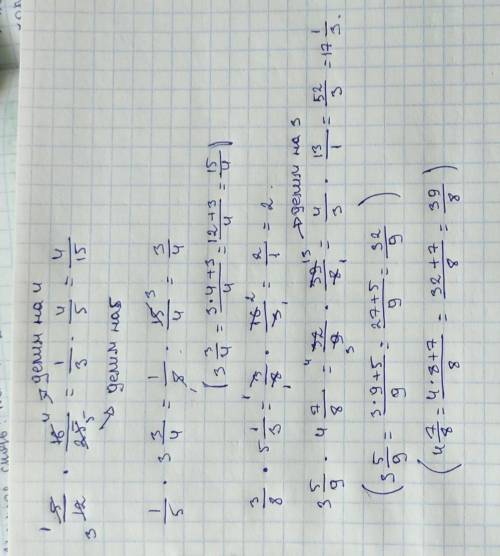 5/12 · 16/25 = 1/3 · 4/5 = 4/15
делим на 4
делим на 5
1/5 · 3 3/4 = 1/5 · 15/4 = 3/4
(3 3/4 = 3·4+3/4 = 12+3/4 = 15/4)
3/8 · 5 1/3 = 3/8 · 16/3 = 2/1 = 2.
3 5/9 · 4 7/8 = 32/9 · 39/8 = 4/3 · 13/1 = 52/3 = 17 1/3.
делим на 3
(3 5/9 = 3·9+5/9 = 27+5/9 = 32/9)
(4 7/8 = 4·8+7/8 = 32+7/8 = 39/8)